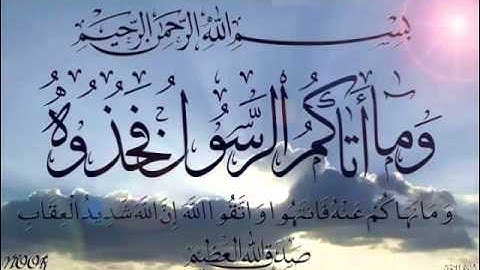 بسم الله الرحمن الرحيم
وَمَا أَتَاكُمُ الرَّسُولُ فَخُذُوهُ
وَمَا نَهَاكُمْ عَنْهُ فَانْتَهُوا وَاتَّقُوا اللهَ إِنَّ اللهَ شَدِيدُ الْعِقَابِ
صدق الله العظيم
NOOR